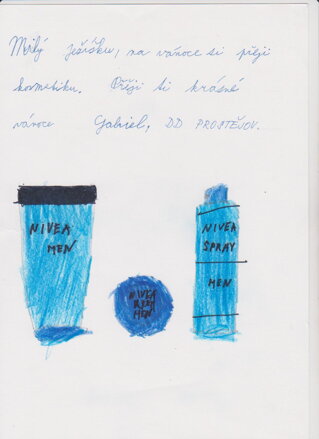 Milý Ježíšku, na vánoce si přeji
kosmetiku. Přeji ti krásné
vánoce Gabriel, DD PROSTĚJOV.
NIVEA
MEN
NIVEA
MEN
NIVEA
SPRAY
MEN